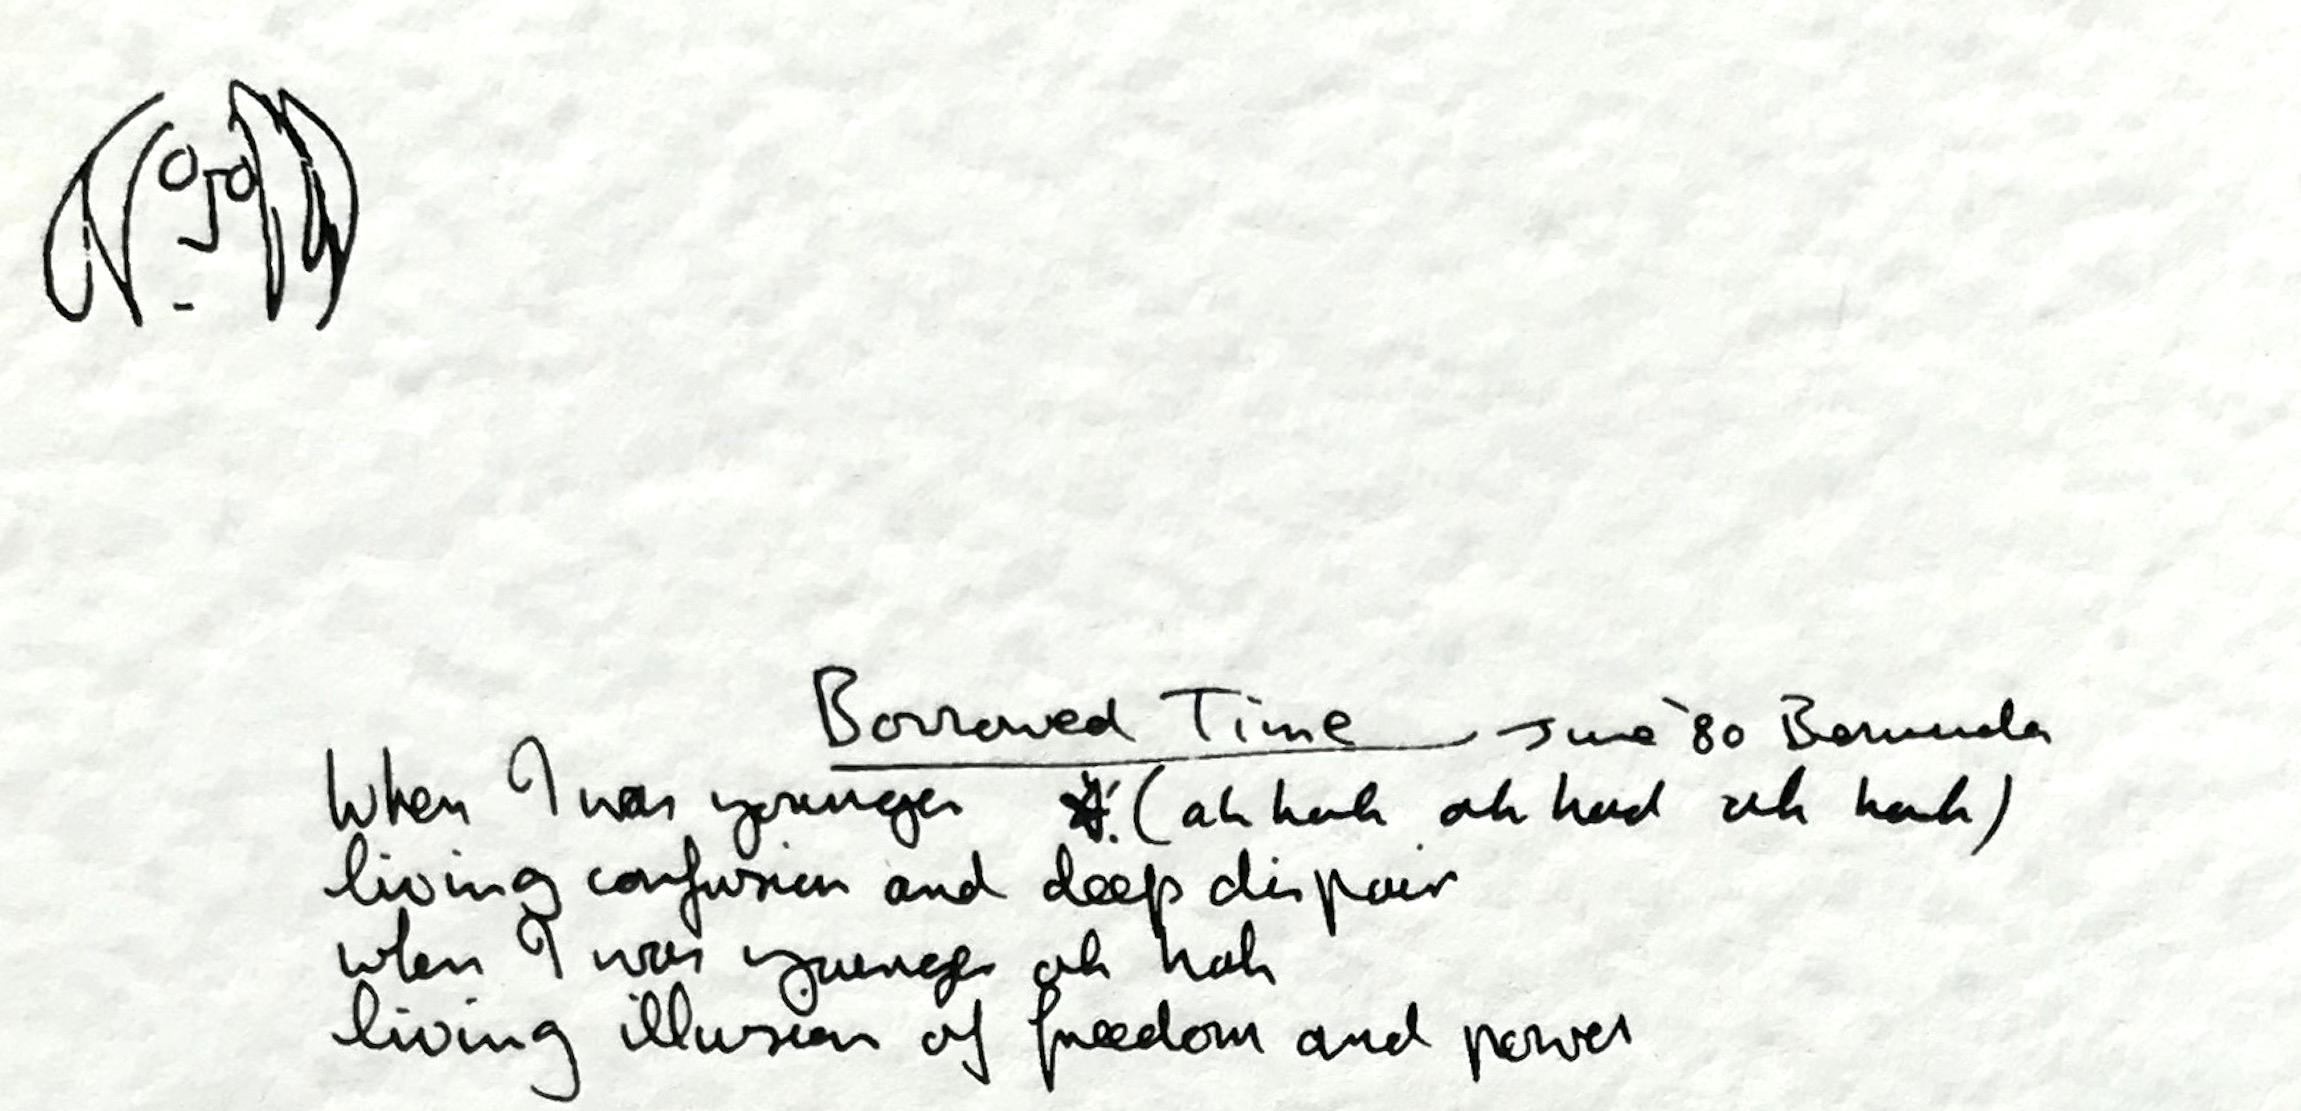 Borrowed Time — June '80 Bermuda
When I was younger (ah hah ah had ah hah)
living confusion and deep dispair
when I was younger ah hah
living illusion of freedom and power